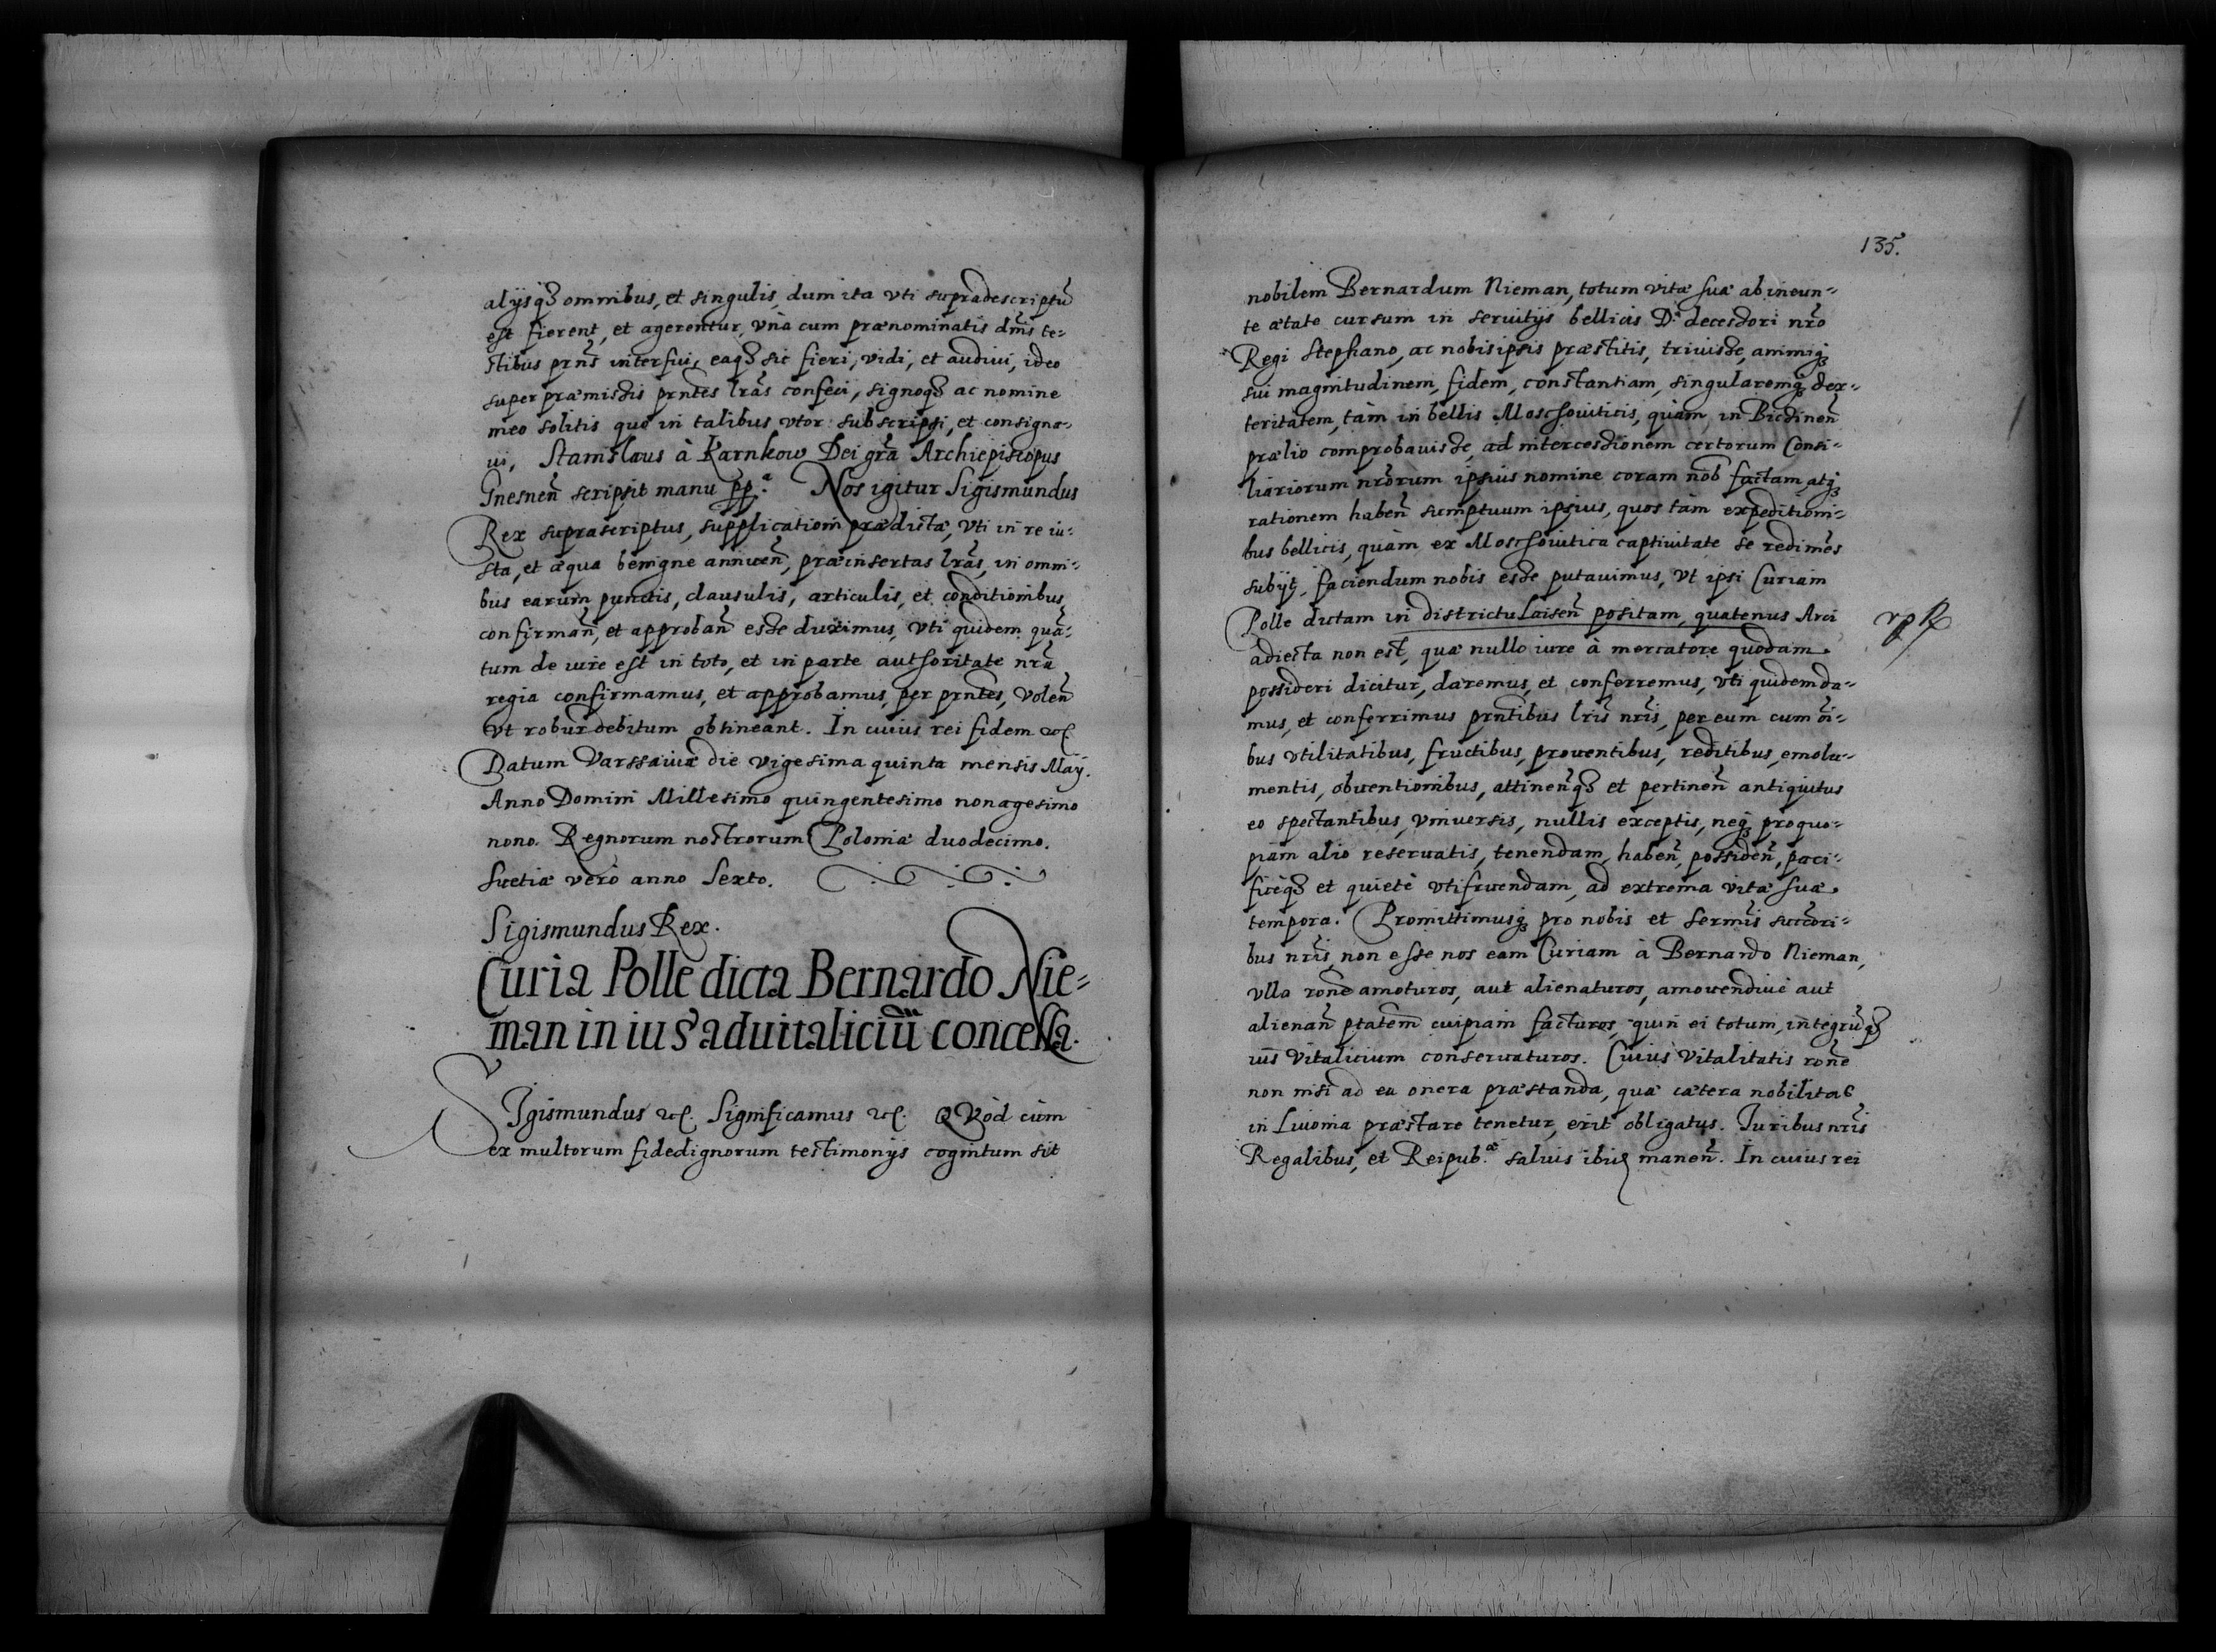 alijsq₃ omnibus, et singulis, dum ita vti supradescriptũ
est fierent, et agerentur, vnà cum prænominatis dñis te-
stibus prñs interfui, eaq₃ sic fieri, vidi, et audiui, ideo
super præmissis prñtes lrãs confeci, signoq₃ ac nomine
meo solitis quo in talibus vtor subscripsi, et consigna-
ui, Stanislaus à Karnkow Dei grã Archiepiscopus
Gnesneñ scripsit manu pp.ª Nos igitur Sigismundus
Rex suprascriptus, supplicationi prædictæ, vti in re iu-
sta, et æqua benigne annueñ, præinsertas lrãs, in omni-
bus earum punctis, clausulis, articulis, et conditionibus
confirmañ, et approbañ esse duximus, vti quidem quã-
tum de iure est in toto, et in parte authoritate nrã
regia confirmamus, et approbamus, per prñtes, voleñ
vt robur debitum obtineant. In cuius rei fidem etc.
Datum Varssauiæ die vigesima quinta mensis Maij.
Anno Domini Millesimo quingentesimo nonagesimo
nono. Regnorum nostrorum Poloniæ duodecimo.
Suetiæ verò anno Sexto.
Sigismundus Rex.
Curia Polle dicta Bernardo Nie-
man in ius aduitaliciũ concessa.
SIgismundus etc. Significamus etc. QVòd cùm
ex multorum fidedignorum testimonijs cognitum sit
135.
nobilem Bernardum Nieman, totum vitæ suæ ab ineun-
te ætate cursum in seruitijs bellicis D: decessori nrõ
Regi Stephano, ac nobisipsis præstitis, triuisse, animiq₃
sui magnitudinem, fidem, constantiam, singularemq₃ dex-
teritatem, tàm in bellis Moschouiticis, quàm, in Bicsineñ
prælio comprobauisse, ad intercessionem certorum Consi-
liariorum nrõrum ipsius nomine coram nõb factam, atq₃
rationem habeñ sumptuum ipsius, quos tàm expeditioni-
bus bellicis, quàm ex Moschouitica captiuitate se redimẽs
subijt, faciendum nobis esse putauimus, vt ipsi Curiam
Polle dictam in districtu Laiseñ positam, quatenus Arci
adiecta non est, quæ nullo iure à mercatore quodam
possideri dicitur, daremus, et conferremus, vti quidem da-
mus, et conferrimus prñtibus lrĩs nrĩs, per eum cum õi-
bus vtilitatibus, fructibus, prouentibus, reditibus, emolu-
mentis, obuentionibus, attineñq₃ et pertineñ antiquitus
eo spectantibus, vniuersis, nullis exceptis, neq₃ pro quo-
piam alio reseruatis, tenendam, habeñ, possideñ, paci-
ficèq₃ et quietè vtifruendam, ad extrema vitæ suæ
tempora. Promittimusq₃ pro nobis et Sermĩs succõri-
bus nrĩs, non esse nos eam Curiam à Bernardo Nieman,
vlla rõne amoturos, aut alienaturos, amouendiuè aut
alienañ ptatẽm cuipiam facturos, quin ei totum, integrũq₃
iũs Vitalicium conseruaturos. Cuius Vitalitatis rõne
non nisi ad ea onera præstanda, quæ cætera nobilitas
in Liuonia præstare tenetur, erit obligatus. Iuribus nrĩs
Regalibus, et Reipub.æ saluis ibid. maneñ. In cuius rei